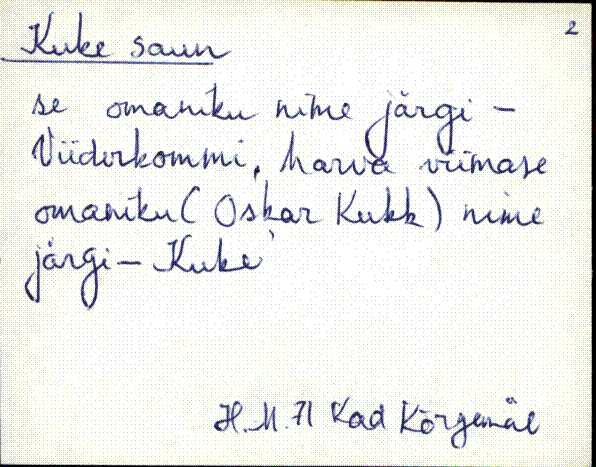 2
Kuke saun
se omaniku nime järgi –
Viiderkommi, harva viimase
omaniku (Oskar Kukk) nime
järgi – Kuke
H.M. 71 Kad Kõrgemäe